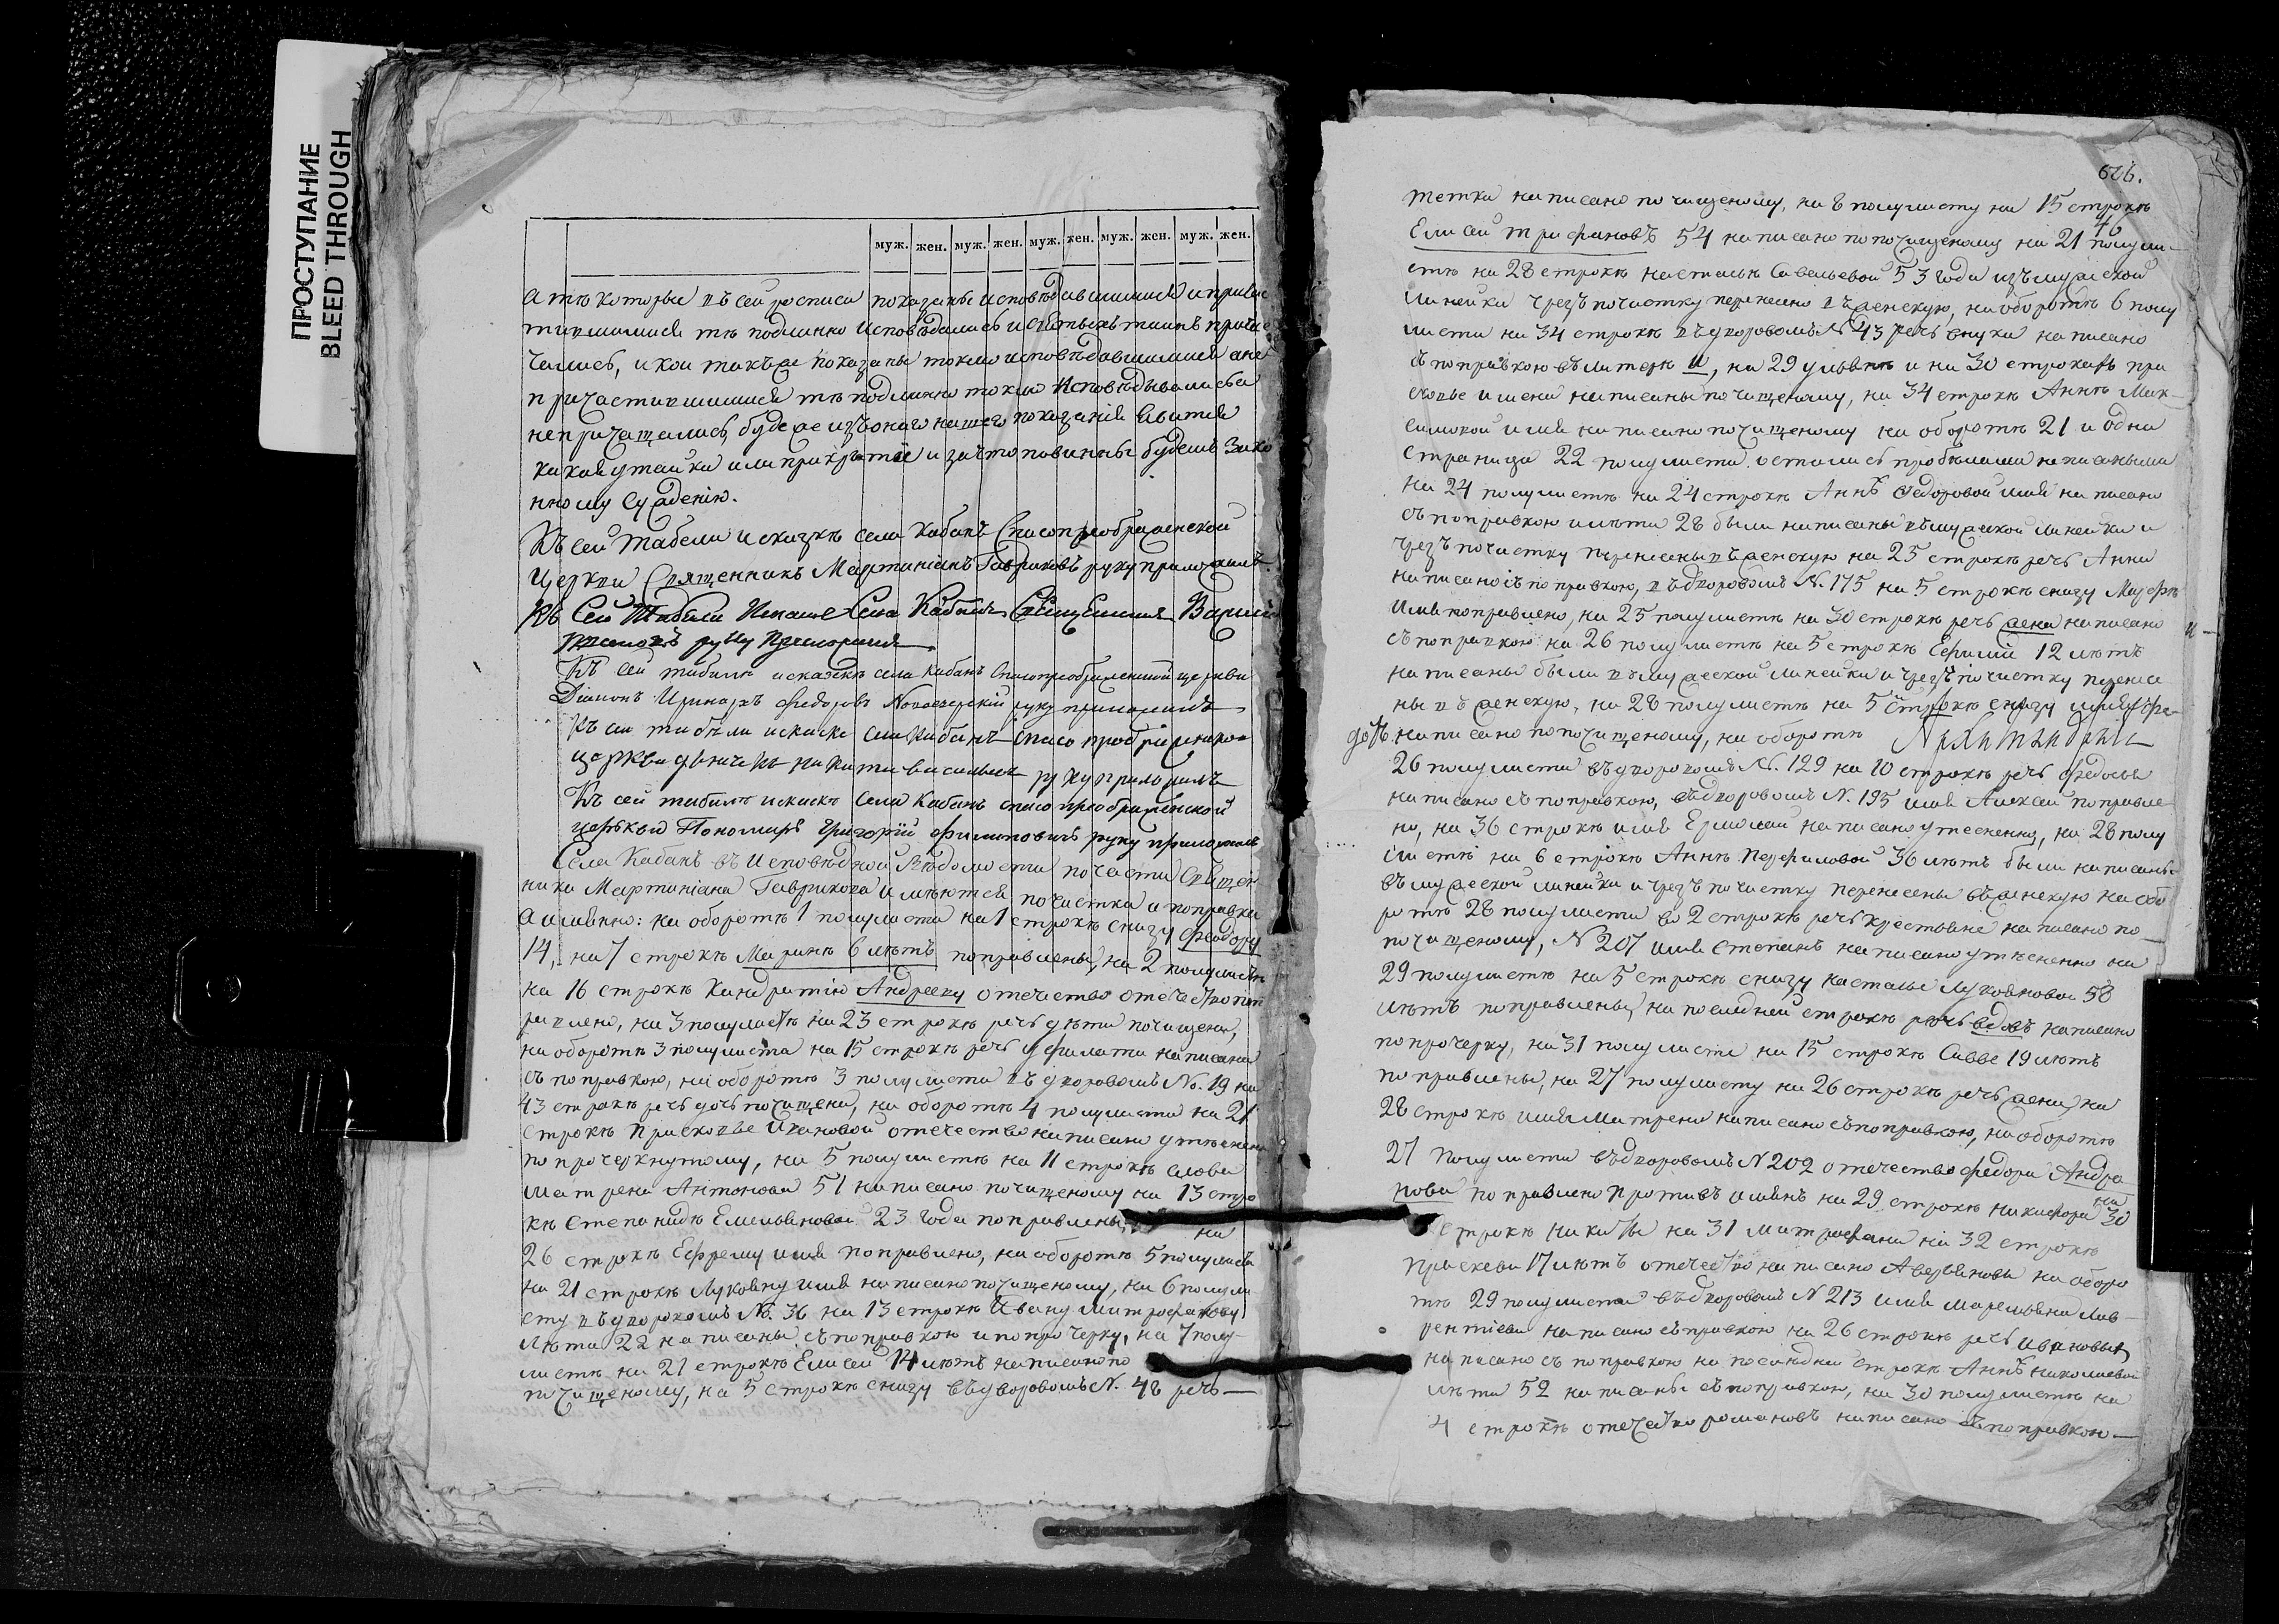 ПРОСТУПАНИЕ
BLEED THROUGH
муж. жен. муж. жен. муж. жен. муж. жен. муж. жен.
а тѣ которые въ сей росписи показаны исповѣдавшимися и прича
стившимися тѣ подлинно исповѣдались и святыхъ таинъ прича
чались, и кои такъ же показаны токмо исповѣдавшимися а не
причастившимися тѣ подлинно токмо исповѣдывались а
непричащались, буде же изъ онаго нашего показанія явится
какая утайка или прикрытіе и за то повинны будемъ зако
нному сужденію.
Къ сей табели и сказкѣ села Кабанъ Спасопреображенской
церкви Священникъ Мартиніанъ Гавриковъ руку приложилъ
Къ сей табели села Кабанъ
руку приложилъ
Къ сей табели и сказкѣ села Кабанъ Спасопреображенской церкви
Діаконъ Иринархъ Федоровъ руку приложилъ
Къ сей табели и скаске села Кабанъ Спасопреображенской
церкви дьячекъ Никита Васильевъ руку приложилъ
Къ сей табели и скаскѣ села Кабанъ спасопреображенской
церькви Пономарь Григорій Филиповичь руку приложилъ
Села Кабанъ въ исповѣдной вѣдомости по части Священ
ника Мартиніана Гаврикова имѣются почистки и поправки
а имянно: на оборотѣ 1 полулиста на 1 строкѣ снизу Феодору
14, на 7 строкѣ Маринѣ 6 лѣтъ поправлены, на 2 полулистѣ
на 16 строкѣ Кондратію Андрееву отечество отечество поп
равлено, на 3 полулистѣ на 23 строкѣ речь дѣти почищена,
на оборотѣ 3 полулиста на 15 строкѣ речь написана
съ поправкою, на оборотѣ 3 полулиста въ дворовомъ No. 19 на
43 строкѣ речь дочь почищена, на оборотѣ 4 полулиста на 21
строкѣ Прасковье Ивановой отечество написано утѣсненно
по прочеркнутому, на 5 полулистѣ на 11 строкѣ слова
Матрена Антонова 51 написано почищеному на 13 стро
кѣ Степанидѣ Емельяновой 23 года поправлены, на
26 строкѣ Ефрему имя поправлено, на оборотѣ 5 полулиста
на 21 строкѣ Луковну имя написано почищеному, на 6 полули
сту въ дворовомъ №. 36 на 13 строкѣ Ивану Митрофанову
лѣта 22 написаны съ поправкою и по прочерку, на 7 полу-
листѣ на 21 строкѣ Елисей 14 лѣтъ написано по
почищеному, на 5 строкѣ снизу въ дворовомъ N. 48 речь —
626.
тетка написано по чищеному, на 8 полулисту на 15 строкѣ
Елисей Трифановъ 54 написано по почищеному на 21 полули-
стѣ на 28 строкѣ Настасьи Савельевой 53 года изъ мужеской
линейки чрезъ почистку перенесено въ женскую, на оборотѣ 6 полу
листа на 34 строкѣ въ дворовомъ N 43 речь внука написано
съ поправкою въ литерѣ и, на 29 Ульянѣ и на 30 строкахъ пра
сковье имена написаны почищеному, на 34 строкѣ Аннѣ Мак-
симовой имя написано почищеному на оборотѣ 21 и одна
страница 22 полулиста остались пробѣлами написаными
на 24 полулистѣ на 24 строкѣ Аннѣ Федоровой имя написано
съ поправкою и лѣта 28 были написаны въ мужеской линейки и
чрезъ почистку перенесены въ женскую на 25 строкѣ речь Анна
написано съ поправкою, въ дворовомъ N. 175 на 5 строкѣ снизу
имя поправлено, на 25 полулистѣ на 30 строкѣ речь жена написано
съ поправкою на 26 полулистѣ на 5 строкѣ 12 лѣтъ
написаны были въ мужеской линейки и чрезъ почистку перенесе
ны въ женскую, на 28 полулистѣ на 5 строкѣ снизу имя
написано по почищеному, на оборотѣ
26 полулиста въ дворовомъ №. 129 на 10 строкѣ речь Федосья
написано съ поправкою, въ дворовомъ N. 195 имя Алексей поправле
но, на 36 строкѣ имя Ермолай написано утесненно, на 28 полу
листѣ на 6 строкѣ Аннѣ Перфиловой 36 лѣтъ были написаны
въ мужеской линейки и чрезъ почистку перенесены въ женскую на обо
ротѣ 28 полулиста во 2 строкѣ речь крестьяне написано по
почищеному, N 207 имя Степанъ написано утѣсненно на
29 полулистѣ на 5 строкѣ снизу Настасье Лукояновой 58
лѣтъ поправлены, на последней строкѣ речь вдовъ написано
по прочерку, на 31 полулисте на 15 строкѣ Савве 19 лѣтъ
поправлены, на 27 полулисту на 26 строкѣ речь жена, на
28 строкѣ имя Матрена написано съ поправкою, на оборотѣ
27 полулиста въ дворовомъ N 202 отечество Федора Андро
нова поправлено противъ имянъ на 29 строкѣ Никифора на 30
строкѣ Никиты на 31 Митрофана на 32 строкѣ
Прасковьи 17 лѣтъ отечество написано Аверьянова на оборо
тѣ 29 полулиста въ дворовомъ N 213 имя Маремьяна Лав-
рентіева написано съ правкою на 26 строкѣ речь Ивановыхъ
написано съ поправкою на последней строкѣ Аннѣ Николаевой
лѣта 52 написаны съ поправкою, на 30 полулистѣ на
4 строкѣ отечество Романовъ написано съ поправкою —